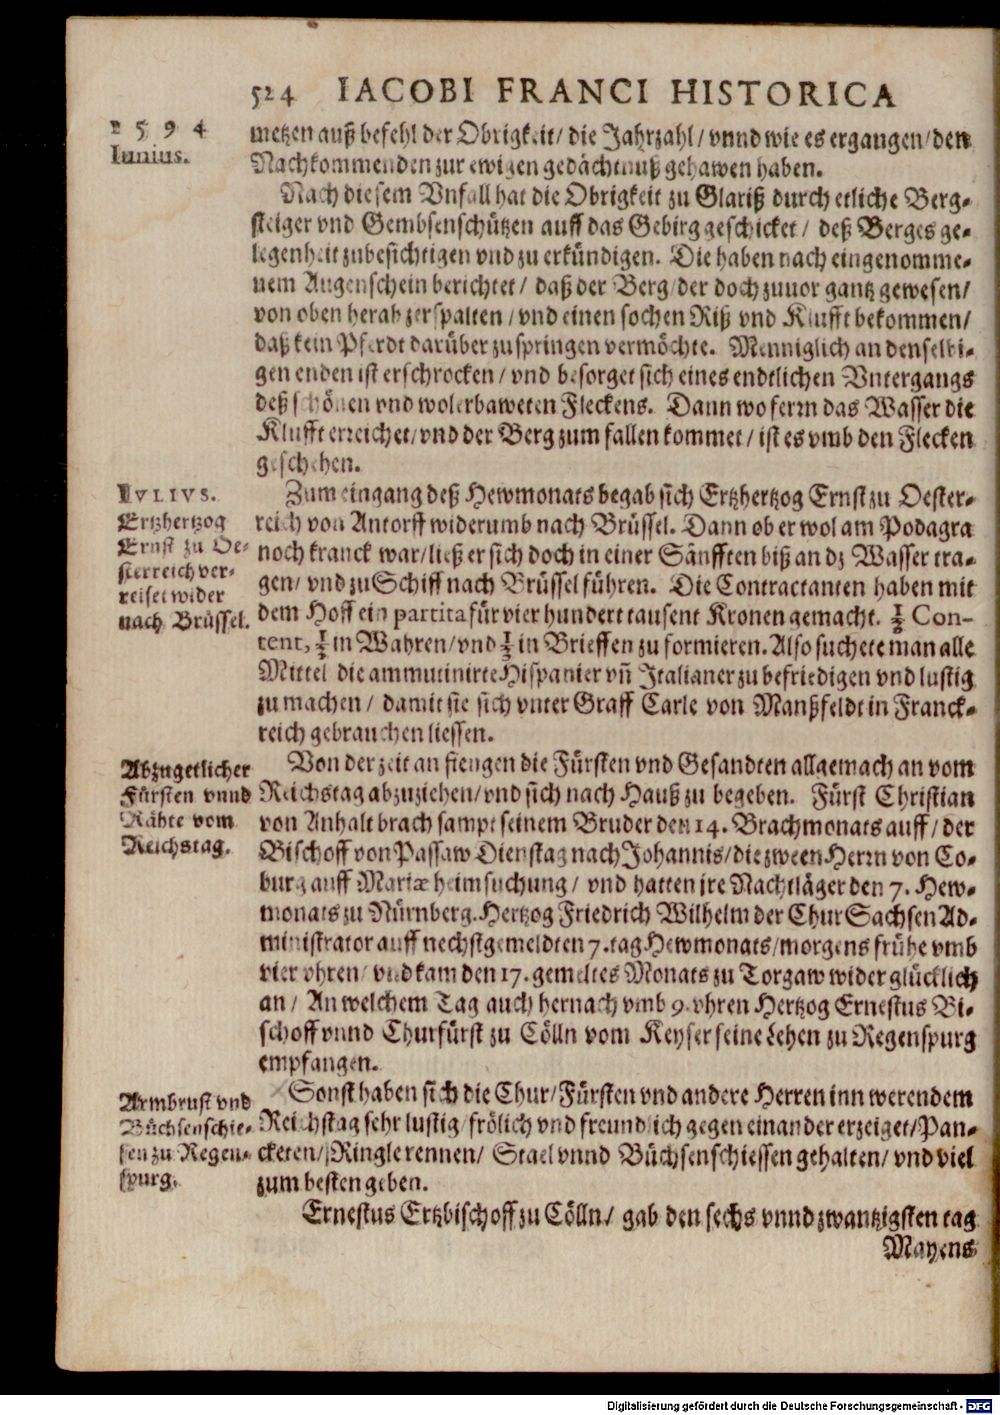 524 IACOBI FRANCI HISTORICA
1594
Iunius.
metzen auß befehl der Obrigkeit/ die Jahrzahl/ vnnd wie es ergangen/ den
Nachkommenden zur ewigen gedächtnuß gehawen haben.
Nach diesem Vnfall hat die Obrigkeit zu Glariß durch etliche Berg-
steiger vnd Gembsenschützen auff das Gebirg geschicket/ deß Berges ge-
legenheit zubesichtigen vnd zu erkündigen. Die haben nach eingenomme-
nem Augenschein berichtet/ daß der Berg/ der doch zuuor gantz gewesen/
von oben herab zerspalten/ vnd einen sochen Riß vnd Klufft bekommen/
daß kein Pferdt darüber zuspringen vermöchte. Menniglich an denselbi-
gen enden ist erschrocken/ vnd besorget sich eines endtlichen Vntergangs
deß schönen vnd wolerbaweten Fleckens. Dann wo ferrn das Wasser die
Klufft erreichet/ vnd der Berg zum fallen kommet/ ist es vmb den Flecken
geschehen.
IVLIVS.
Ertzhertzog
Ernst zu Oe-
sterreich ver-
reiset wider
nach Brüssel.
Zum eingang deß Hewmonats begab sich Ertzhertzog Ernst zu Oester-
reich von Antorff widerumb nach Brüssel. Dann ob er wol am Podagra
noch kranck war/ ließ er sich doch in einer Sänfften biß an dz Wasser tra-
gen/ vnd zu Schiff nach Brüssel führen. Die Contractanten haben mit
dem Hoff ein partita für vier hundert tausent Kronen gemacht. ½ Con-
tent, ½ in Wahren/ vnd ½ in Brieffen zu formieren. Also suchete man alle
Mittel die ammutinirte Hispanier vñ Italianer zu befriedigen vnd lustig
zu machen/ damit sie sich vnter Graff Carle von Manßfeldt in Franck-
reich gebrauchen liessen.
Abzug etlicher
Fürsten vnnd
Rähte vom
Reichstag.
Von der zeit an fiengen die Fürsten vnd Gesandten allgemach an vom
Reichstag abzuziehen/ vnd sich nach Hauß zu begeben. Fürst Christian
von Anhalt brach sampt seinem Bruder den 14. Brachmonats auff/ der
Bischoff von Passaw Dienstag nach Johannis/ die zween Herrn von Co-
burg auff Mariæ heimsuchung/ vnd hatten jre Nachtläger den 7. Hew-
monats zu Nürnberg. Hertzog Friedrich Wilhelm der Chur Sachsen Ad-
ministrator auff nechstgemeldten 7. tag Hewmonats/ morgens frühe vmb
vier vhren/ vnd kam den 17. gemeltes Monats zu Torgaw wider glücklich
an/ An welchem Tag auch hernach vmb 9. vhren Hertzog Ernestus Bi-
schoff vnnd Churfürst zu Cölln vom Keyser seine Lehen zu Regenspurg
empfangen.
Armbrust vnd
Büchsenschie-
sen zu Regen-
spurg.
Sonst haben sich die Chur/ Fürsten vnd andere Herren inn werendem
Reichstag sehr lustig/ frölich vnd freundlich gegen einander erzeiget/ Pan-
cketen/ Ringle rennen/ Stael vnnd Büchsenschiessen gehalten/ vnd viel
zum besten geben.
Ernestus Ertzbischoff zu Cölln/ gab den sechs vnnd zwantzigsten tag
Mayens
Digitalisierung gefördert durch die Deutsche Forschungsgemeinschaft - DFG